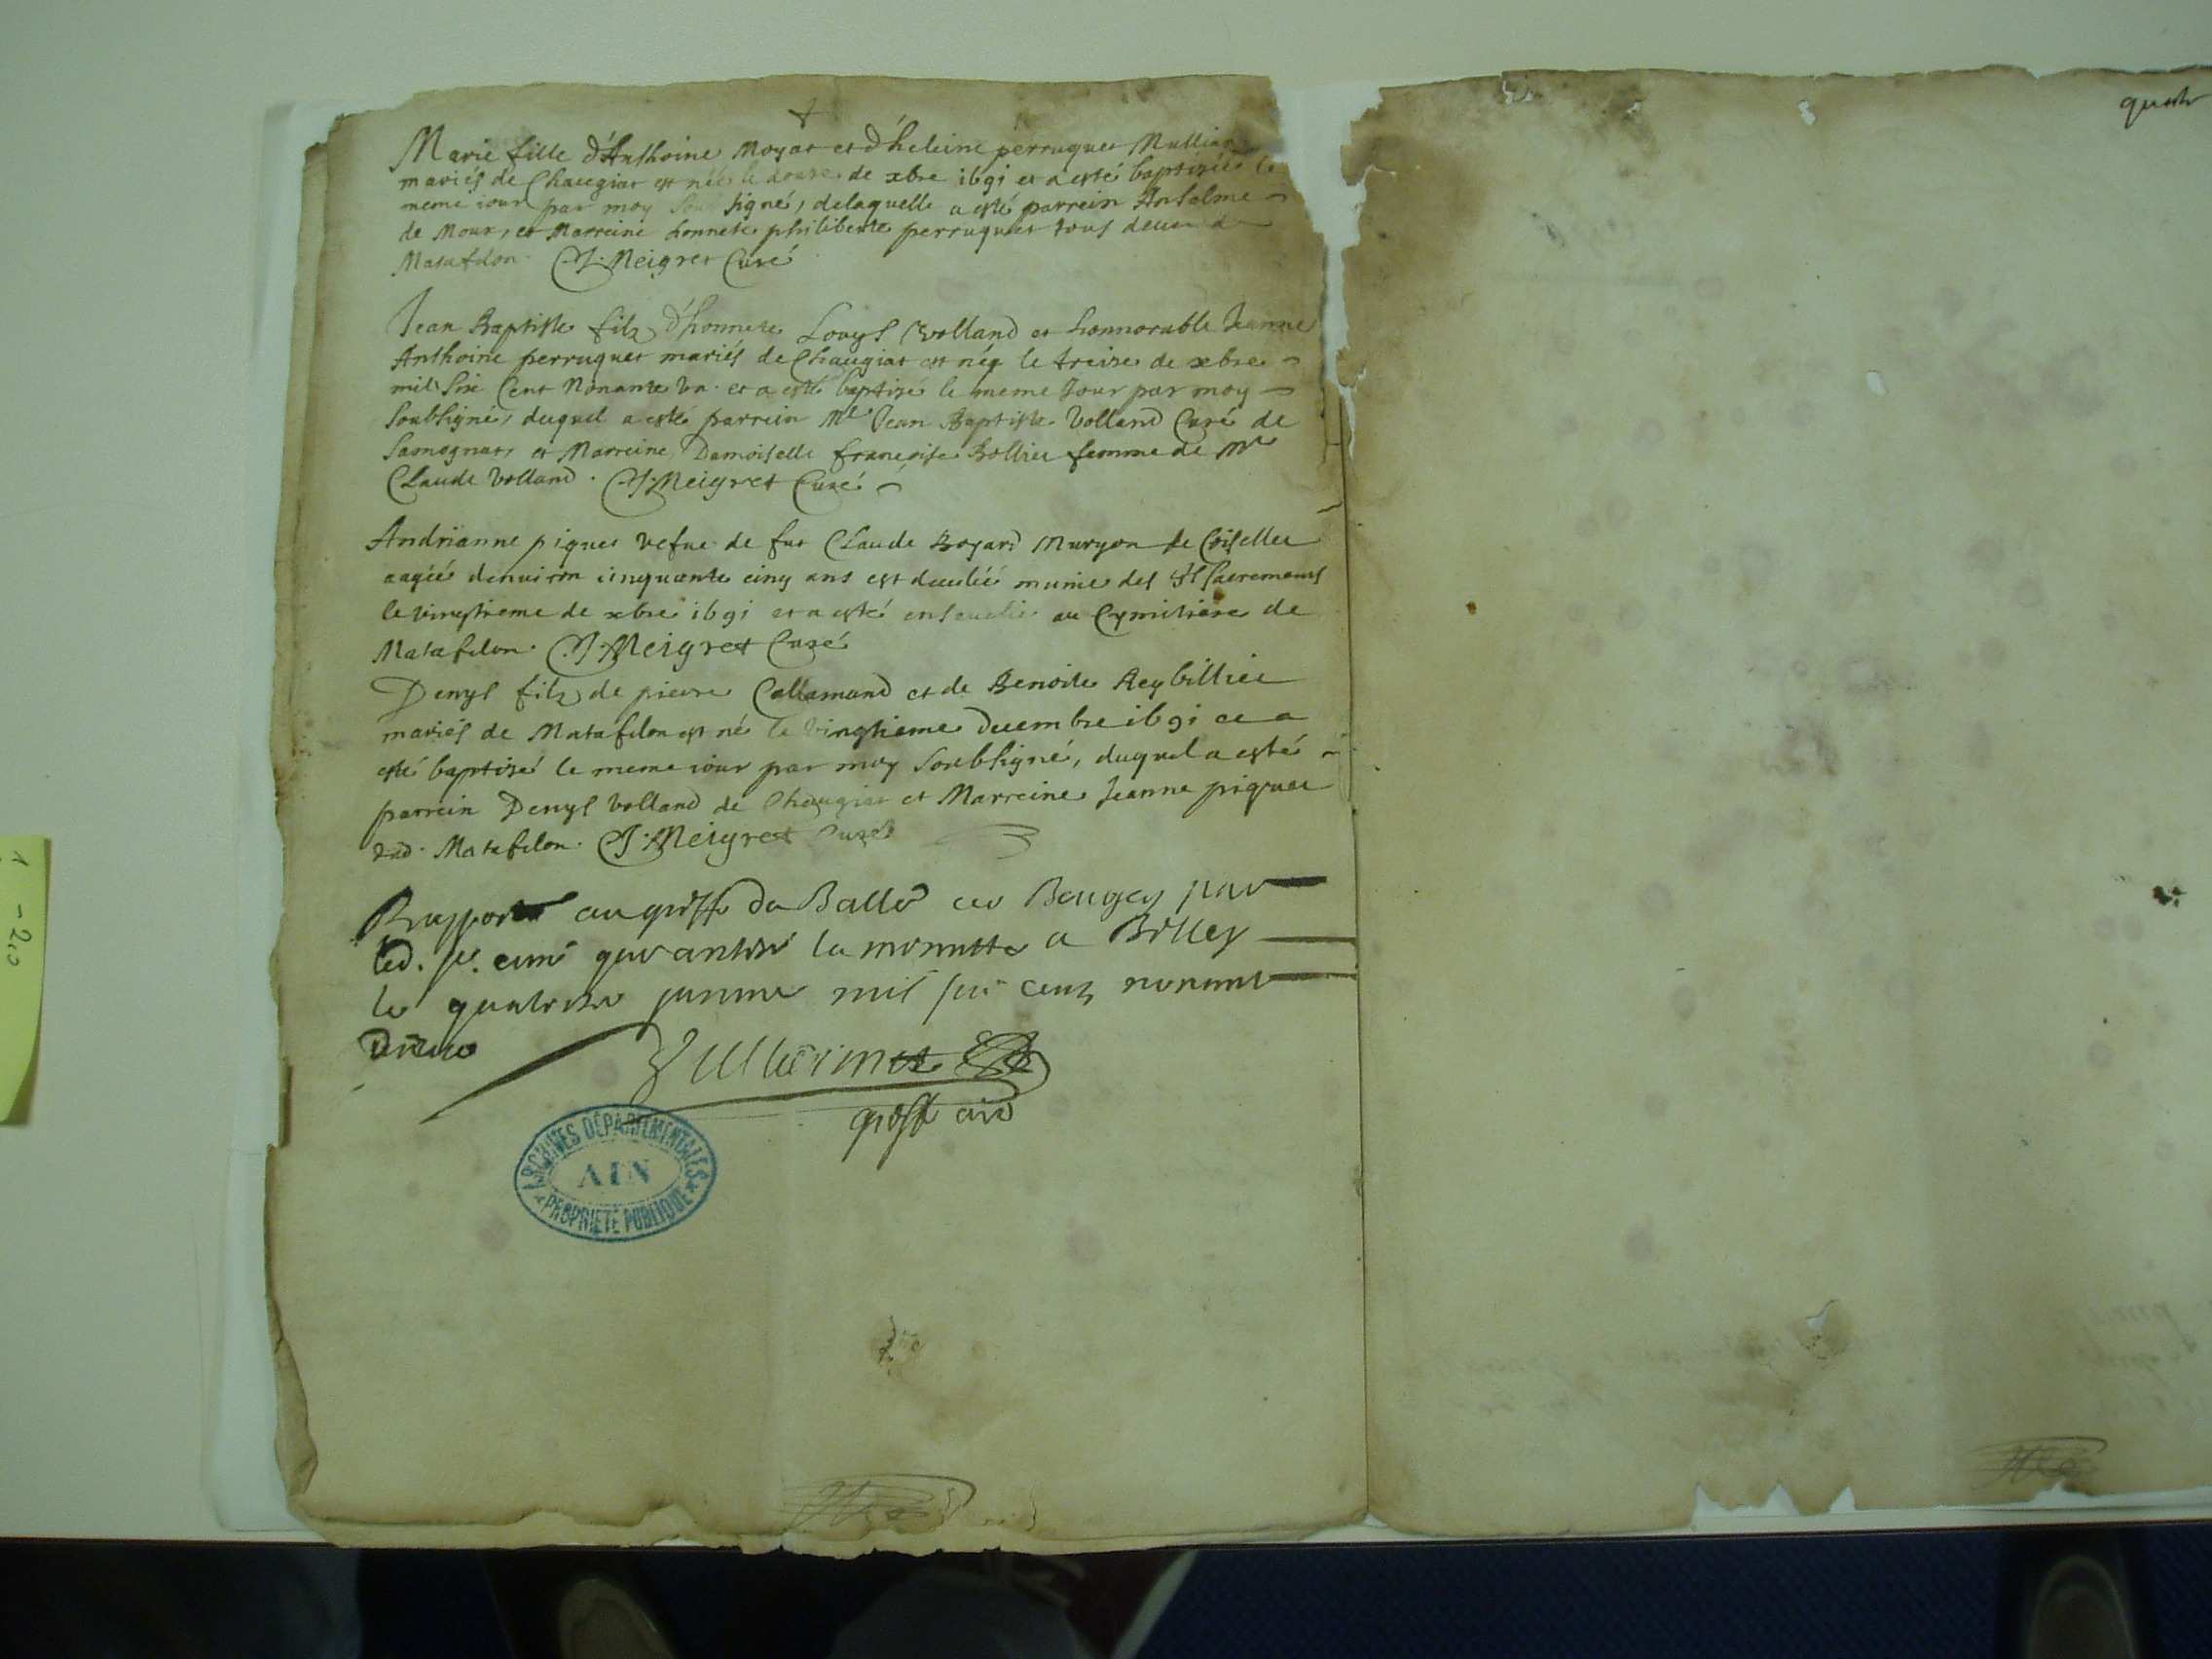 Marie fille d'Anthoine Moyat et d'heleine perruquet
mariés de Chaugiat est née le douze de xbre 1691 et a esté baptizée le
meme iour par moy soubsigné, delaquelle a esté parrein Anselme
de Mour, et Marreine honneste philiberte perruquet tous deux de
Matafelon. J. Meigret Curé
Jean Baptiste filz d'honneste Louys Volland et honnorable Jeanne
Anthoine perruquet mariés de Chaugiat est néy le treize de xbre
mil Six Cent Nonante Un. et a esté baptizé le meme Jour par moy
Soubsigné, duquel a esté parrein Mre Jean Baptiste Volland Curé de
Samognat, et Marreine Damoiselle francoise Bollier femme de Mre
Claude Volland. J. Meigret Curé
Andrianne piquet vefue de fut Claude Boyard Muryon de Coiselet
aagéé denuiron cinquante cinq ans est decedéé munie des Sts Sacremens
le vingtieme de xbre 1691 et a esté enseuelie au Cymitiere de
Matafelon. J. Meigret Curé
Denys filz de pierre Callamand et de Benoite Reybillier
mariés de Matafelon est né le vingtieme Decembre 1691 et a
esté baptizé le meme iour par moy Soubsigné, duquel a esté
parrein Denys Volland de Chaugiat et Marreine Jeanne piquet
dud. Matafelon. J. Meigret Curé
Rapporté au greffe du Balle de Beugey par
led. sr. curé la minutte a Belley
le quatorze mil six cents nonante
deux
greff
ARCHIVES DÉPARTEMENTALES
AIN
PROPRIÉTÉ PUBLIQUE